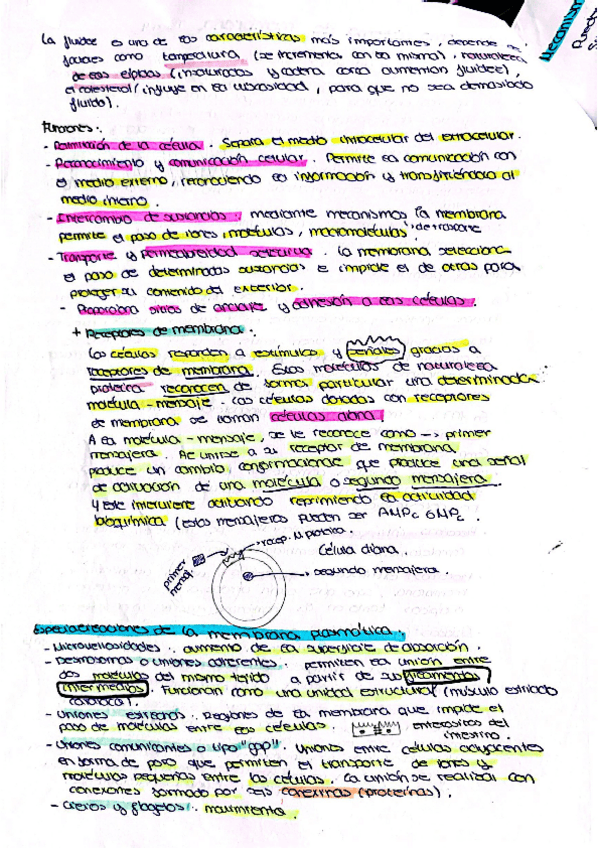 La fluidez es una de sus características más importantes, depende de
factores como temperatura (se incrementa con la misma), naturaleza
de los lípidos (insaturados y cadena corta aumentan fluidez),
el colesterol (influye en la viscosidad, para que no sea demasiado
fluido).
Funciones:.
- Delimitación de la célula. Separa el medio intracelular del extracelular.
- Reconocimiento y comunicación celular. Permite la comunicación con
el medio externo, reconociendo la información y transfiriéndola al
medio interno.
- Intercambio de sustancias: mediante mecanismos la membrana
permite el paso de iones, moléculas, macromoléculas, de transporte
- Transporte y permeabilidad selectiva. La membrana selecciona
el paso de determinadas sustancias e impide el de otras para
proteger su contenido del exterior.
- Proporciona sitios de anclaje y adhesión a las células.
+ Receptores de membrana:.
Las células responden a estímulos y señales gracias a
receptores de membrana. Estas moléculas de naturaleza
proteica reconocen de forma particular una determinada
molécula-mensaje. Las células dotadas con receptores
de membrana se llaman células diana.
A la molécula-mensaje, se le reconoce como → primer
mensajero. Al unirse a su receptor de membrana
produce un cambio conformacional que produce una señal
de activación de una molécula o segundo mensajero.
y este interviene activando reprimiendo la actividad
bioquímica (estos mensajeros pueden ser AMPc GMPc.
primer mensaj.
recep. M. proteica.
Célula diana.
segundo mensajero.
Especializaciones de la membrana plasmática.
- Microvellosidades: aumento de la superficie de absorción.
- Desmosomas o uniones adherentes: permiten la unión entre
dos moléculas del mismo tejido a partir de sus filamentos
intermedios. Funcionan como una unidad estructural (músculo estriado
cardíaco).
- Uniones estrechas. Regiones de la membrana que impide el
paso de moléculas entre las células. enterocitos del
intestino.
- Uniones comunicantes o tipo "gap". Uniones entre células adyacentes
en forma de poro que permiten el transporte de iones y
moléculas pequeñas entre las células. La unión se realiza con
conexones formado por seis conexinas (proteínas).
- Cilios y flagelos: movimiento.
Mecanism